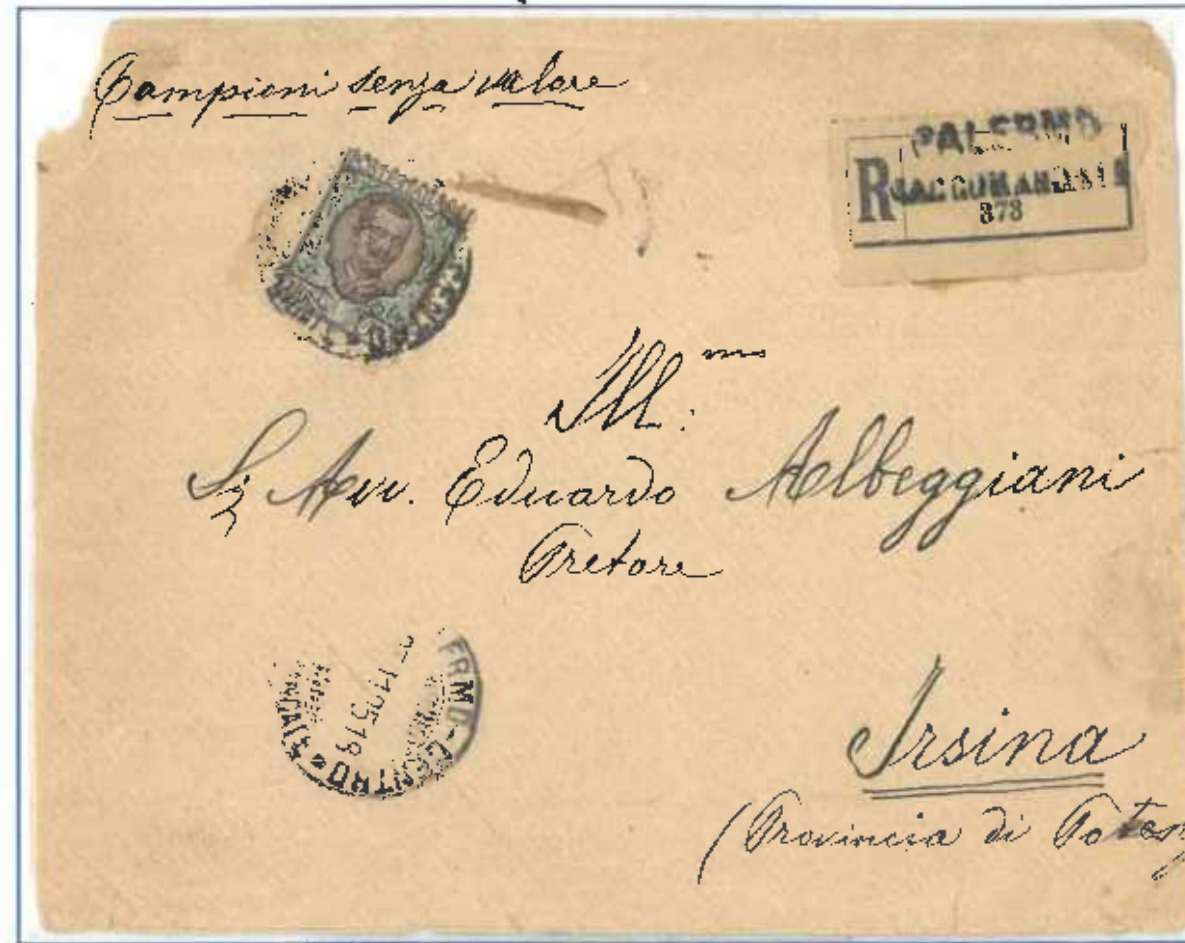 Campioni senza valore
PALERMO
R RACCOMANDATE
373
Ill.mo
Sig Avv. Eduardo Albeggiani
Pretore
ERMO-CENTRO
Irsina
(Provincia di Potenz